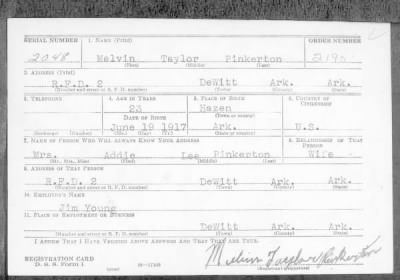 SERIAL NUMBER 1. NAME (Print) ORDER NUMBER
2048 Melvin Taylor Pinkerton
(First) (Middle) (Last)
2. ADDRESS (Print)
R.F.D. 2 DeWitt Ark. Ark.
(Number and street or R. F. D. number) (Town) (County) (State)
3. TELEPHONE 4. AGE IN YEARS 5. PLACE OF BIRTH 6. COUNTRY OF CITIZENSHIP
23 Hazen
DATE OF BIRTH (Town or county)
June 19 1917 Ark. U.S.
(Exchange) (Number) (Mo.) (Day) (Yr.) (State or country)
7. NAME OF PERSON WHO WILL ALWAYS KNOW YOUR ADDRESS 8. RELATIONSHIP OF THAT PERSON
Mrs. Addie Lee Pinkerton Wife
(Mr., Mrs., Miss) (First) (Middle) (Last)
9. ADDRESS OF THAT PERSON
R.F.D. 2 DeWitt Ark. Ark.
(Number and street or R. F. D. number) (Town) (County) (State)
10. EMPLOYER'S NAME
Jim Young
11. PLACE OF EMPLOYMENT OR BUSINESS
DeWitt Ark. Ark.
(Number and street or R. F. D. number) (Town) (County) (State)
I AFFIRM THAT I HAVE VERIFIED ABOVE ANSWERS AND THAT THEY ARE TRUE.
REGISTRATION CARD
D. S. S. Form 1 Melvin Taylor Pinkerton
(Registrant's signature)